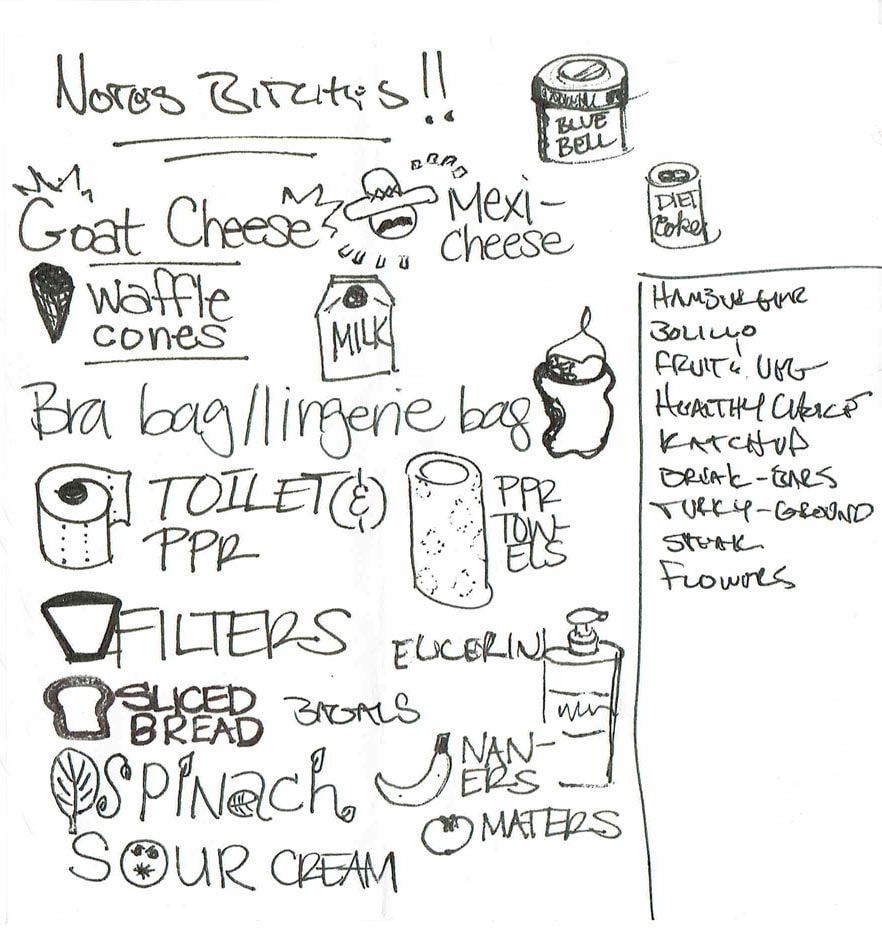 Notes Bitches!!
BLUE
BELL
DIET
Coke
Goat Cheese
Mexi-
cheese
waffle
cones
MILK
Bra bag/lingerie bag
TOILET (&)
PPR
PPR
TOW-
ELS
FILTERS
EUCERIN
SLICED
BREAD
BAGALS
SPINach
NAN-
ERS
MATERS
SOUR CREAM
HAMBURGER
BOLILLO
FRUIT & VEG
HEALTHY CHOICE
KATCHUP
BREAK-BARS
TURKY-GROUND
STEAK
FLOWERS